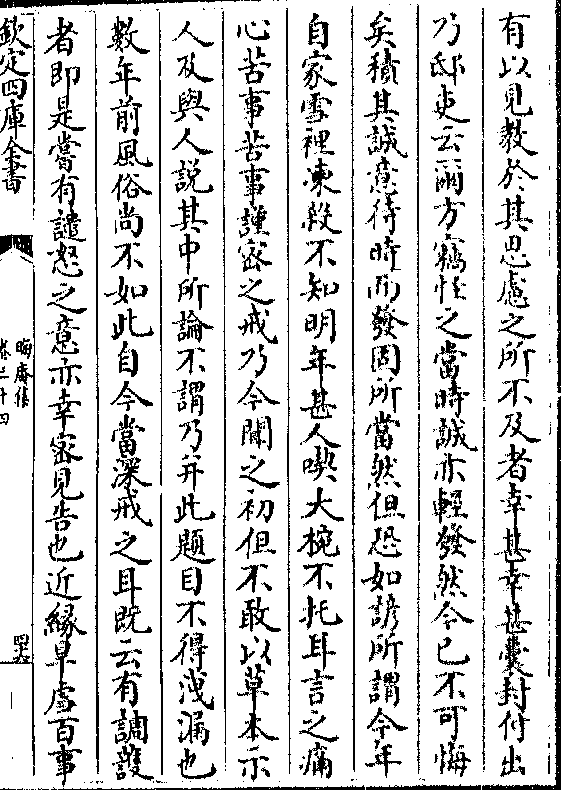 有以見教於其思慮之所不及者幸甚幸甚囊封付出
乃邸吏云爾方竊怪之當時誠亦輕發然今已不可悔
矣積其誠意待時而發固所當然但恐如諺所謂今年
自家雪裡凍殺不知明年甚人喫大椀不托耳言之痛
心苦事苦事謹密之戒乃今聞之初但不敢以草本示
人及與人說其中所論不謂乃并此題目不得洩漏也
數年前風俗尚不如此自今當深戒之耳既云有調護
者即是嘗有譴怒之意亦幸密見告也近緣旱虐百事
欽定四庫全書
晦庵集
卷三十四